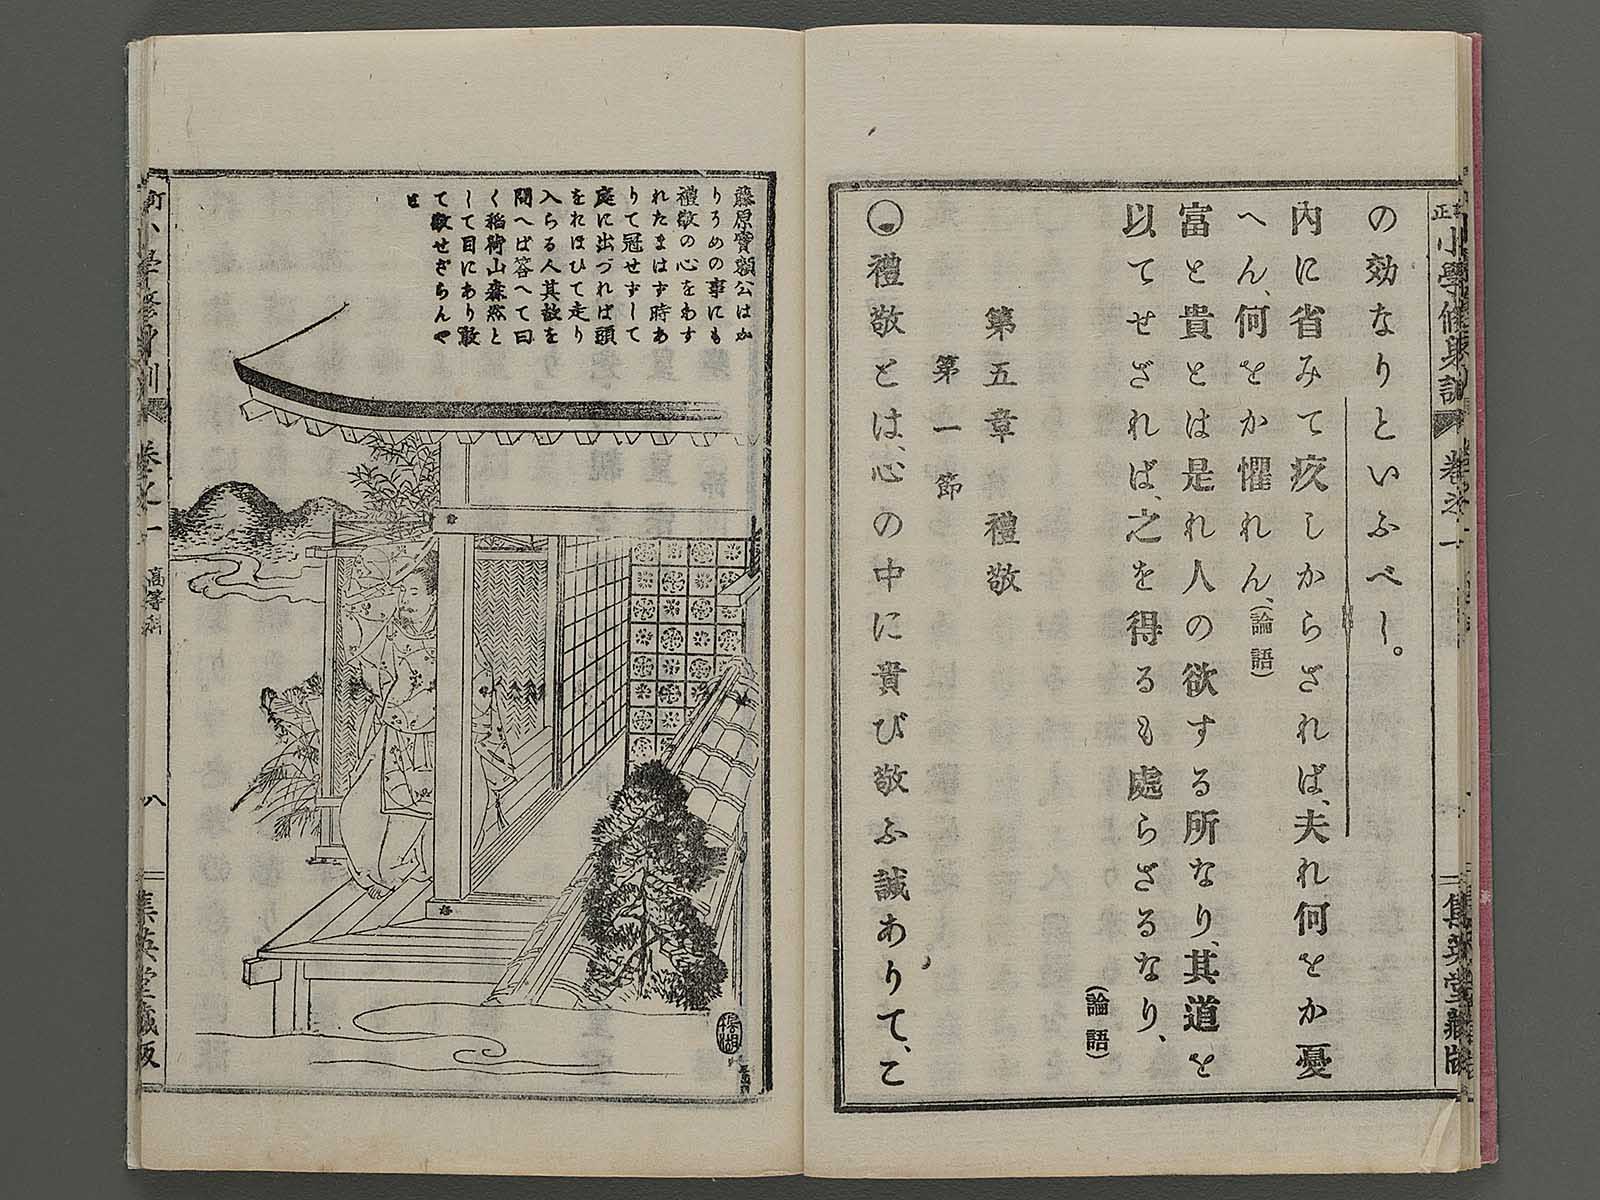 正小學修身訓 卷之一
集英堂藏版
の効なりといふべし。
内に省みて疚しからざれば、夫れ何をか憂
へん、何をか懼れん、(論語)
富と貴とは是れ人の欲する所なり、其道を
以てせざれば、之を得るも處らざるなり、
(論語)
第五章 禮敬
第一節
禮敬とは、心の中に貴び敬ふ誠ありて、こ
藤原實頼公はか
りそめの事にも
禮敬の心をわす
れたまはず時あ
りて冠せずして
庭に出づれば頭
をおほひて走り
入らる人其故を
問へば答へて曰
く稻荷山森然と
して目にあり敢
て敬せざらんや
と
小學修身訓 卷之一 高等科 八 集英堂藏版
楊湖